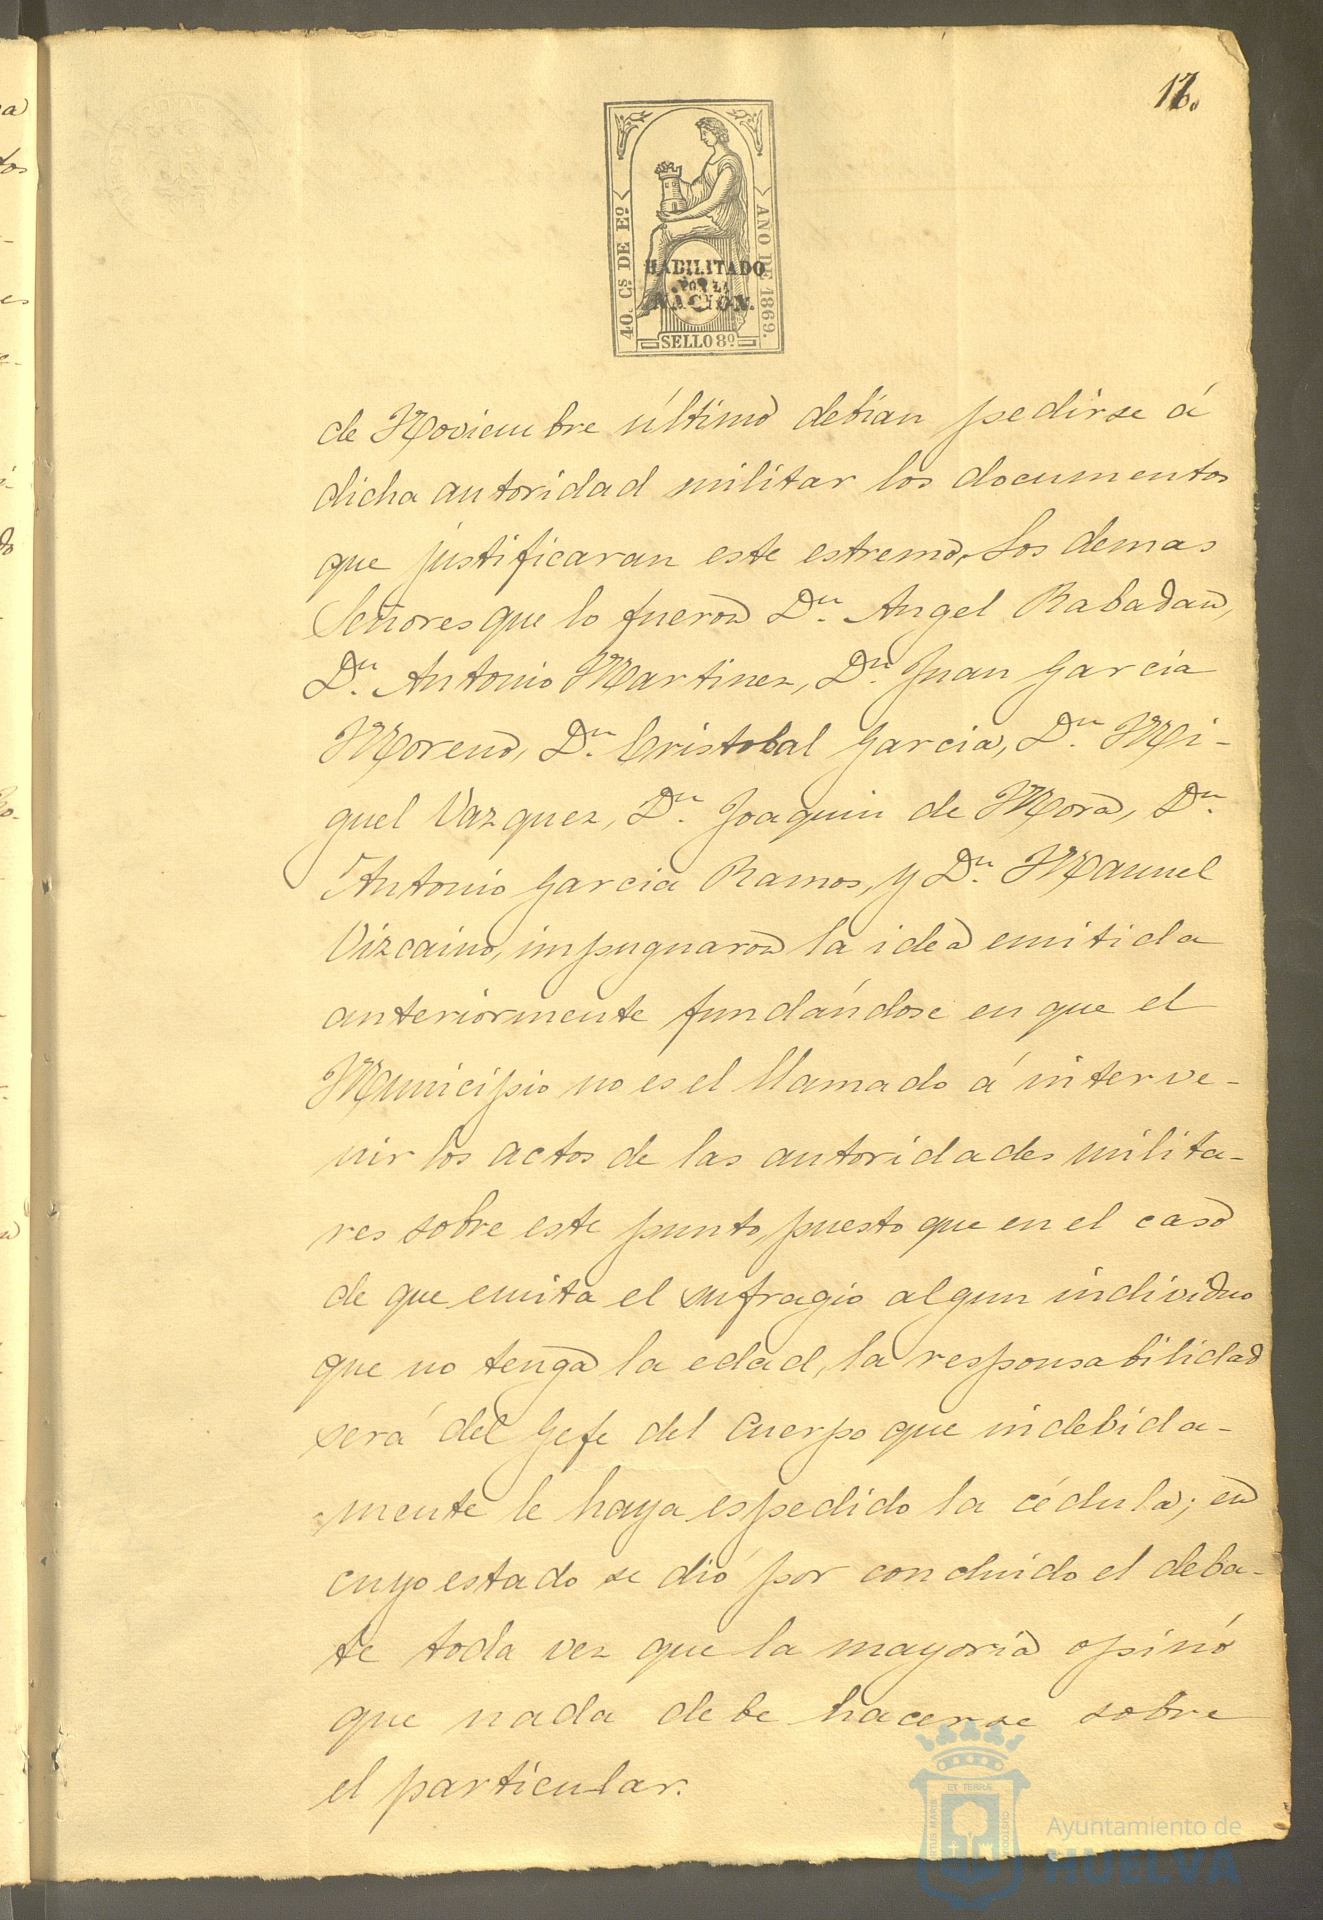 40. Cs DE Eo
AÑO DE 1869.
HABILITADO
POR LA
NACION.
SELLO 8º
de Noviembre último debian pedirse á
dicha autoridad militar los documentos
que justificaran este estremo. Los demas
Señores que lo fueron Dn. Angel Rabadan,
Dn. Antonio Martinez, Dn. Juan Garcia
Moreno, Dn. Cristobal Garcia, Dn. Mi-
guel Vazquez, Dn. Joaquin de Mora, Dn.
Antonio Garcia Ramos, y Dn. Manuel
Vizcaino, impugnaron la idea emitida
anteriormente fundándose en que el
Municipio no es el llamado á interve-
nir los actos de las autoridades milita-
res sobre este punto, puesto que en el caso
de que emita el sufragio algun individuo
que no tenga la edad, la responsabilidad
será del Gefe del Cuerpo que indebida-
mente le haya espedido la cédula; en
cuyo estado se dió por concluido el deba-
te toda vez que la mayoria opinó
que nada debe hacerse sobre
el particular.
Ayuntamiento de
HUELVA